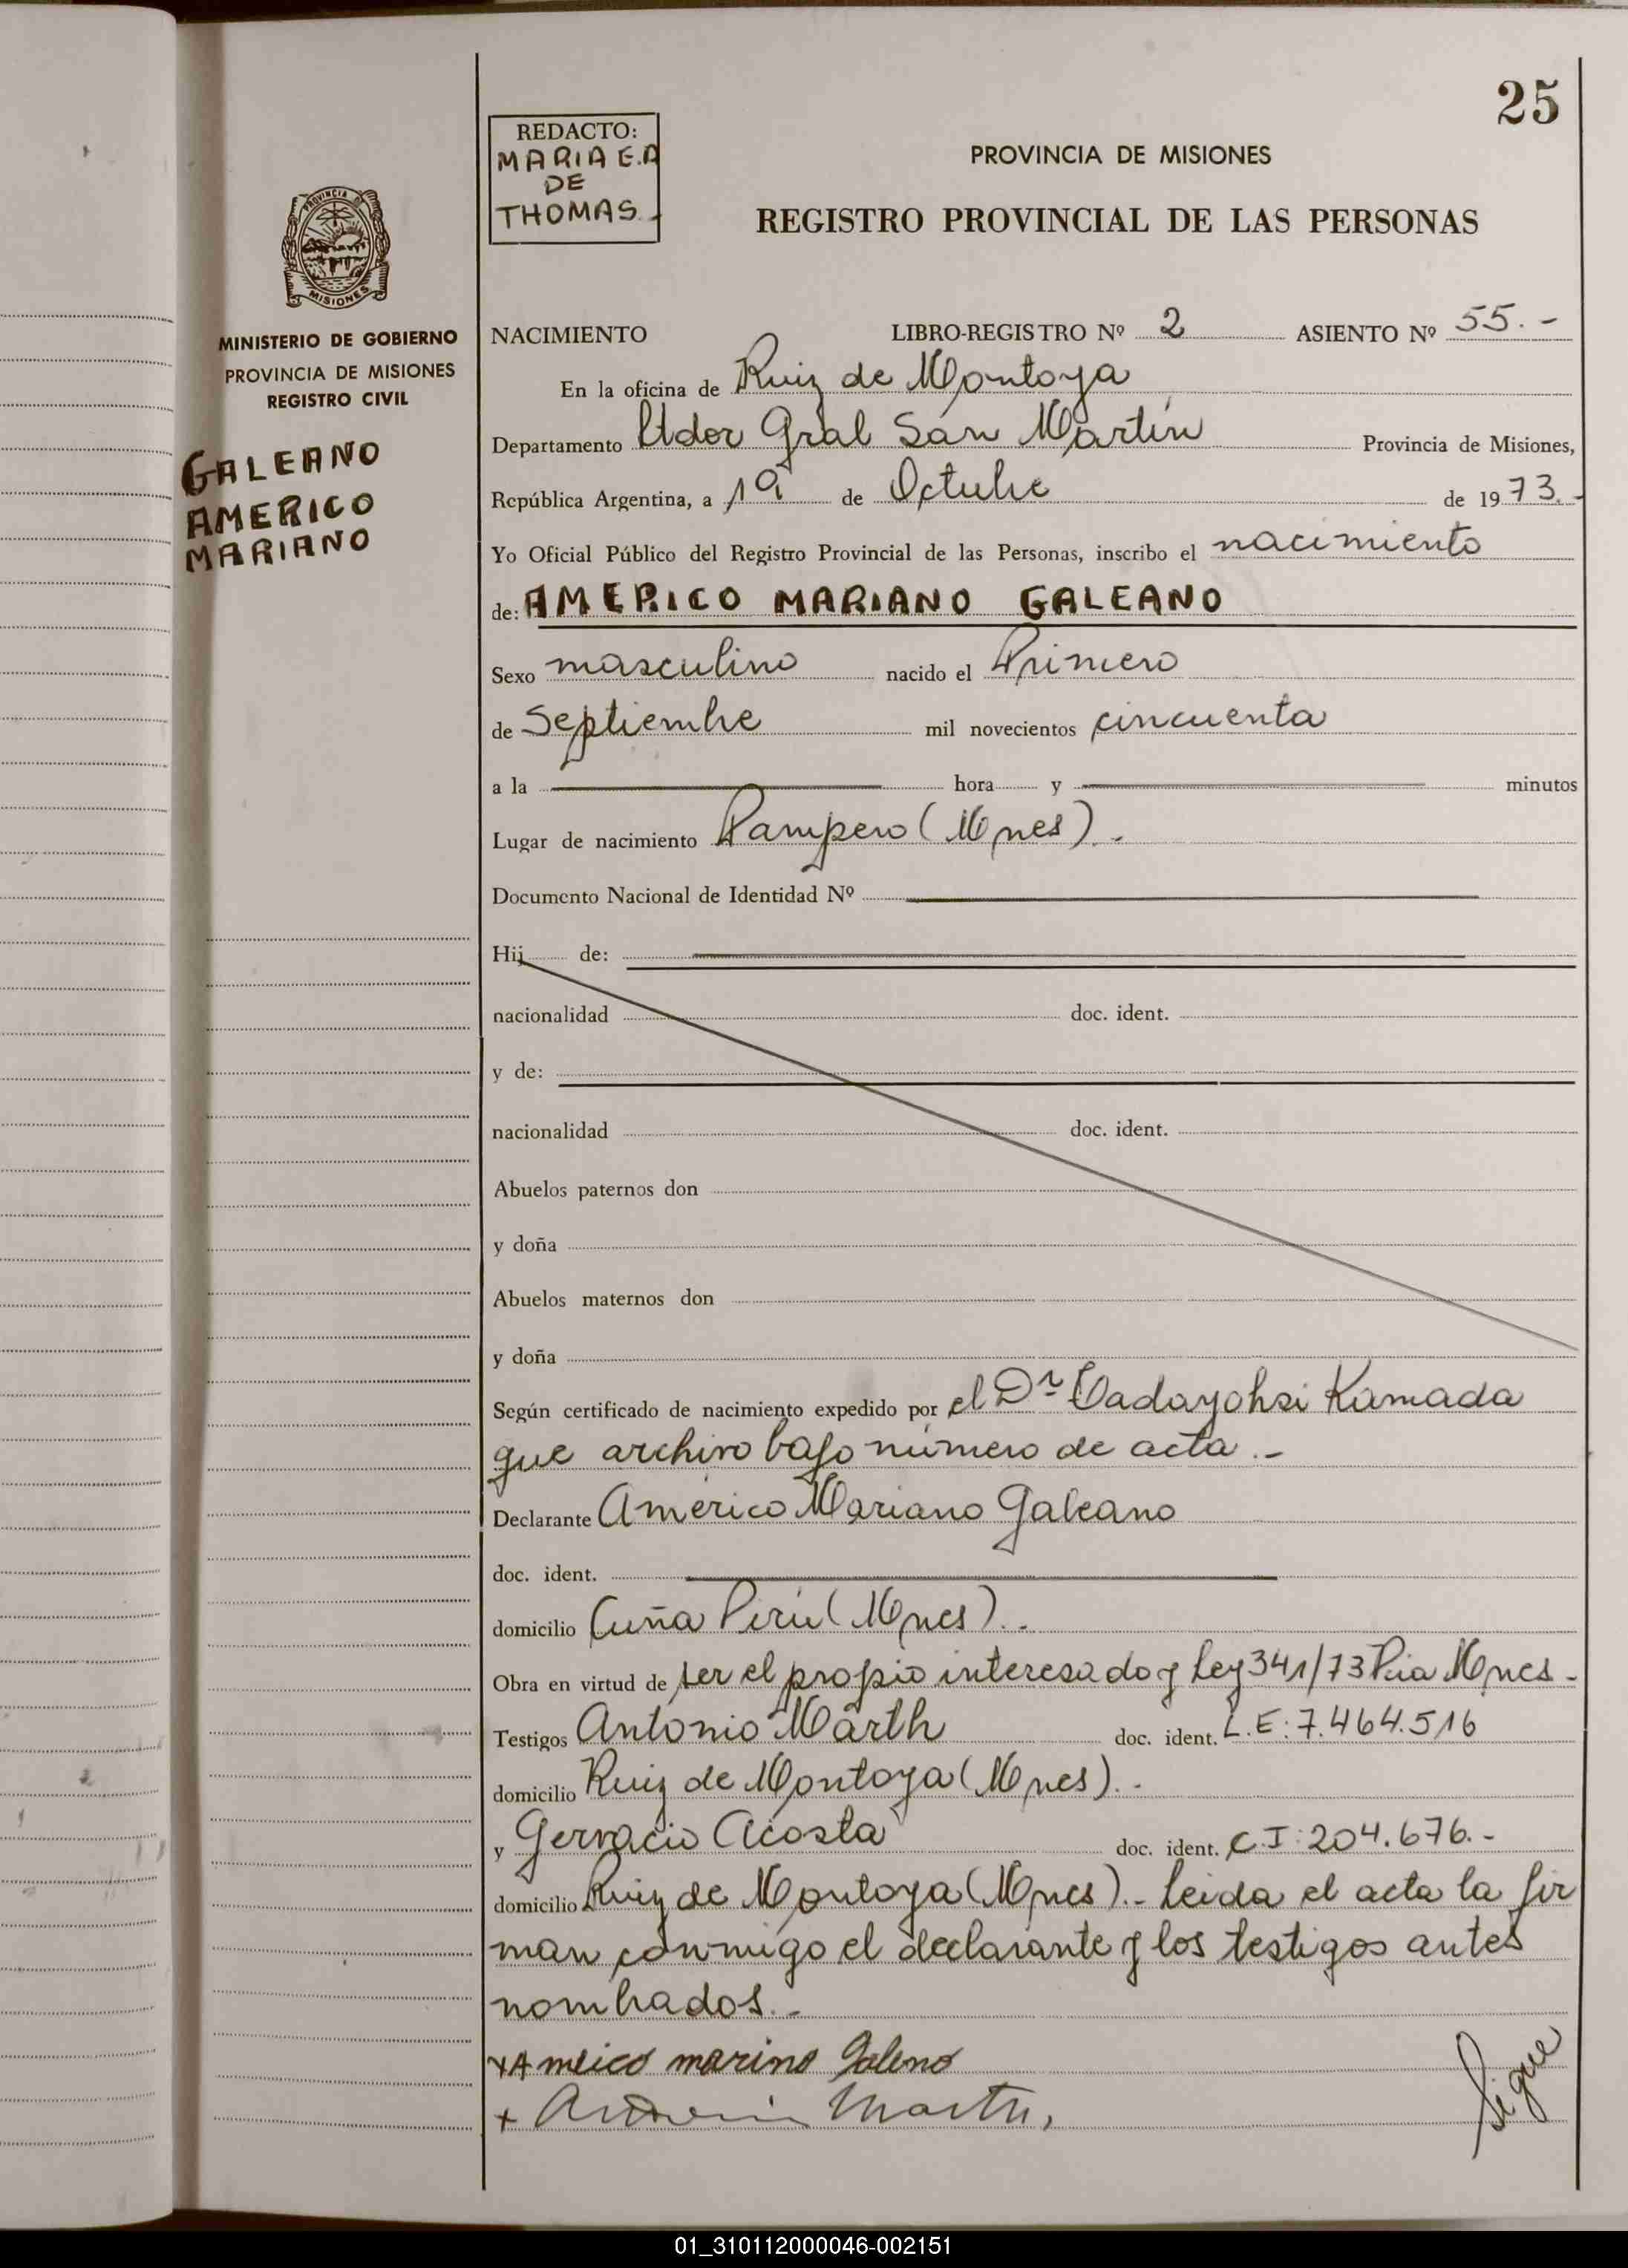 25
REDACTO:
MARIA E.A
DE
THOMAS.-
PROVINCIA DE MISIONES
REGISTRO PROVINCIAL DE LAS PERSONAS
PROVINCIA
MISIONES
MINISTERIO DE GOBIERNO
PROVINCIA DE MISIONES
REGISTRO CIVIL
GALEANO
AMERICO
MARIANO
NACIMIENTO LIBRO-REGISTRO Nº 2 ASIENTO Nº 55.-
En la oficina de Ruiz de Montoya
Departamento Ltdor Gral San Martín Provincia de Misiones,
República Argentina, a 19 de Octubre de 1973.-
Yo Oficial Público del Registro Provincial de las Personas, inscribo el nacimiento
de: AMERICO MARIANO GALEANO
Sexo masculino nacido el Primero
de Septiembre mil novecientos cincuenta
a la hora y minutos
Lugar de nacimiento Pampero (Mnes).-
Documento Nacional de Identidad Nº
Hij de:
nacionalidad doc. ident.
y de:
nacionalidad doc. ident.
Abuelos paternos don
y doña
Abuelos maternos don
y doña
Según certificado de nacimiento expedido por el Dr Kamada
que archivo bajo número de acta.-
Declarante Américo Mariano Galeano
doc. ident.
domicilio Cuña Pirú (Mnes).-
Obra en virtud de ser el propio interesado y Ley 341/73 Pcia Mnes-
Testigos Antonio Märth doc. ident. L.E: 7.464.516
domicilio Ruiz de Montoya (Mnes).-
y Gervacio Acosta doc. ident. C I: 204.676.-
domicilio Ruiz de Montoya (Mnes).- Leida el acta la fir
man conmigo el declarante y los testigos antes
nombrados.-
+Ameico marino Galeno
+
Sigue
01_310112000046-002151